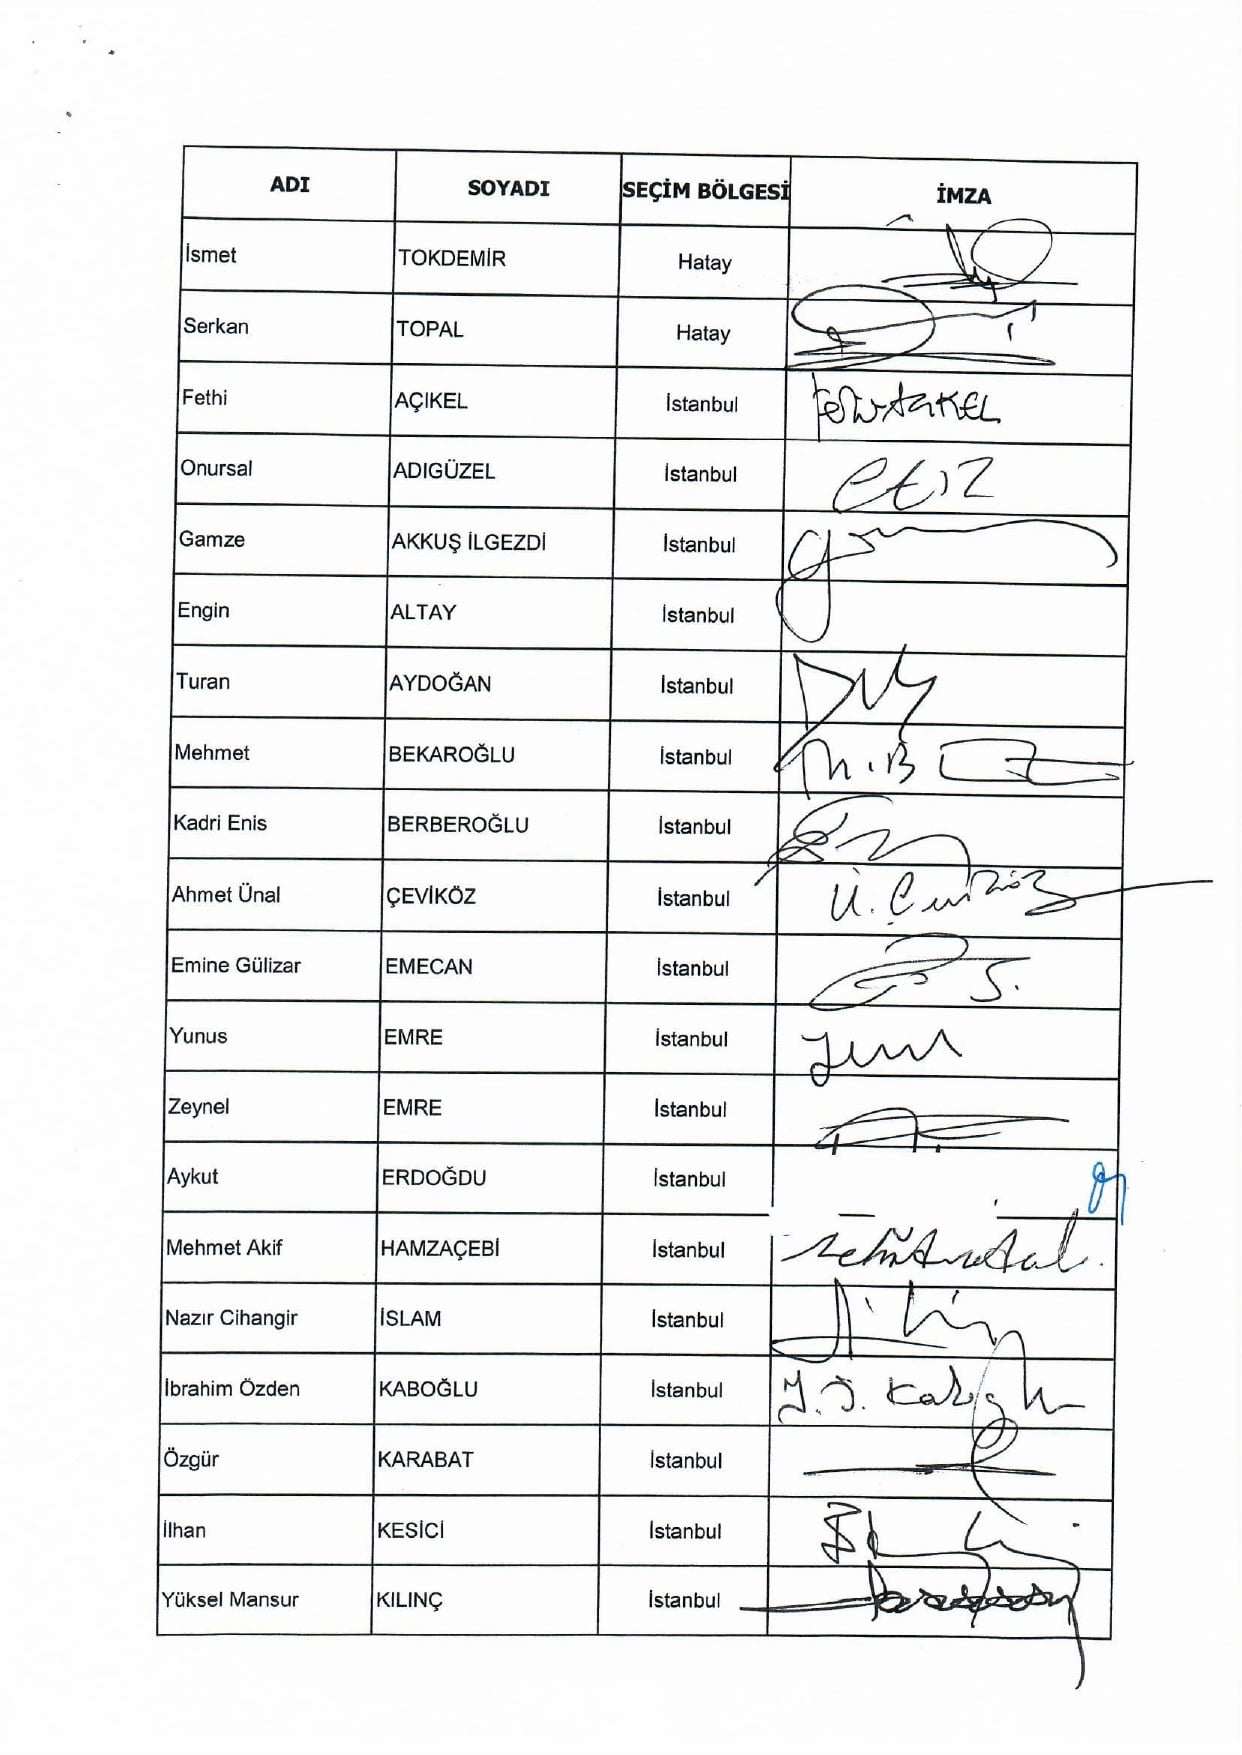 ADI SOYADI SEÇİM BÖLGESİ İMZA
İsmet TOKDEMİR Hatay
Serkan TOPAL Hatay
Fethi AÇIKEL İstanbul
Onursal ADIGÜZEL İstanbul
Gamze AKKUŞ İLGEZDİ İstanbul
Engin ALTAY İstanbul
Turan AYDOĞAN İstanbul
Mehmet BEKAROĞLU İstanbul M.B
Kadri Enis BERBEROĞLU İstanbul
Ahmet Ünal ÇEVİKÖZ İstanbul Ü. Çeviköz
Emine Gülizar EMECAN İstanbul
Yunus EMRE İstanbul
Zeynel EMRE İstanbul
Aykut ERDOĞDU İstanbul
Mehmet Akif HAMZAÇEBİ İstanbul
Nazır Cihangir İSLAM İstanbul
İbrahim Özden KABOĞLU İstanbul İ.Ö. Kaboğlu
Özgür KARABAT İstanbul
İlhan KESİCİ İstanbul
Yüksel Mansur KILINÇ İstanbul